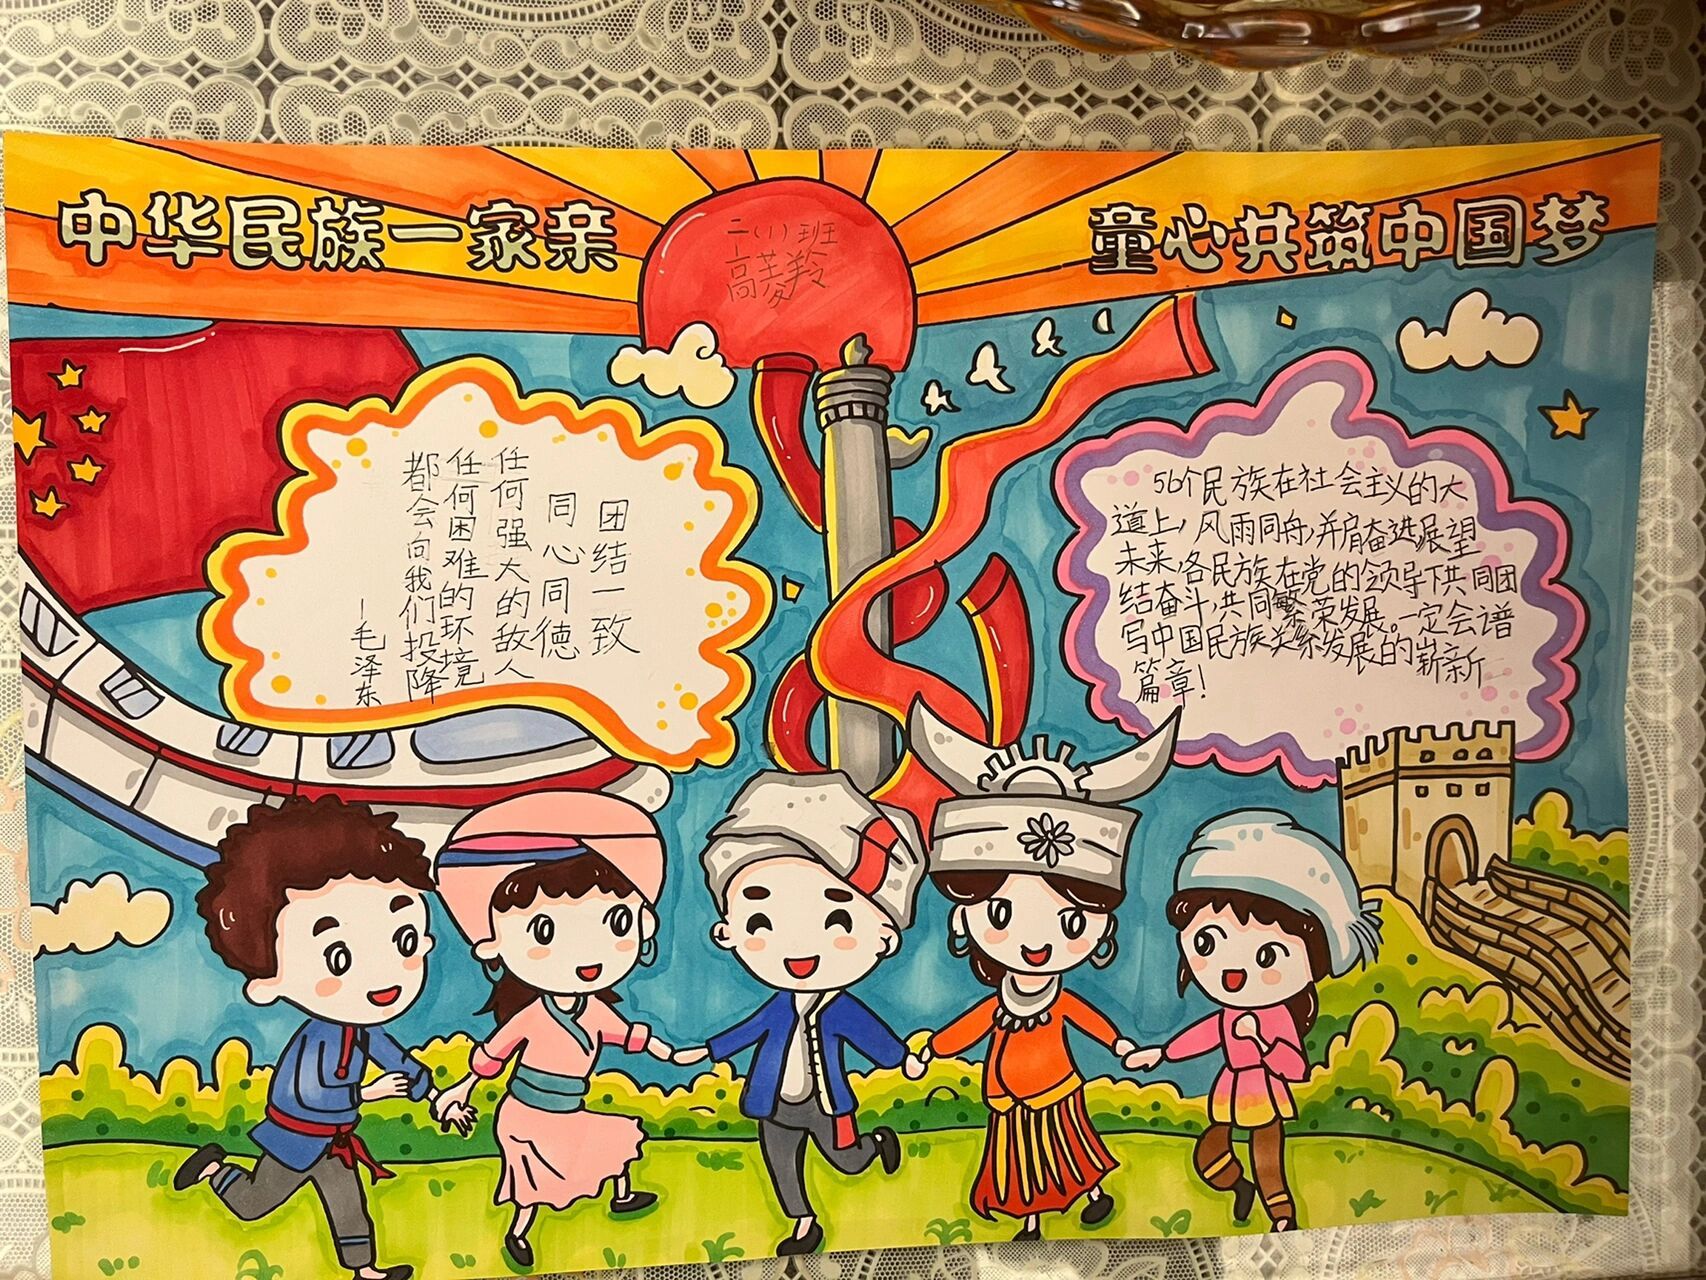 中华民族一家亲
童心共筑中国梦
二(1)班
高菱羚
团结一致
同心同德
任何强大的敌人
任何困难的环境
都会向我们投降
—毛泽东
56个民族在社会主义的大
道上,风雨同舟,并肩奋进,展望
未来,各民族在党的领导下共同团
结奋斗,共同繁荣发展。一定会谱
写中国民族关系发展的崭新
篇章!